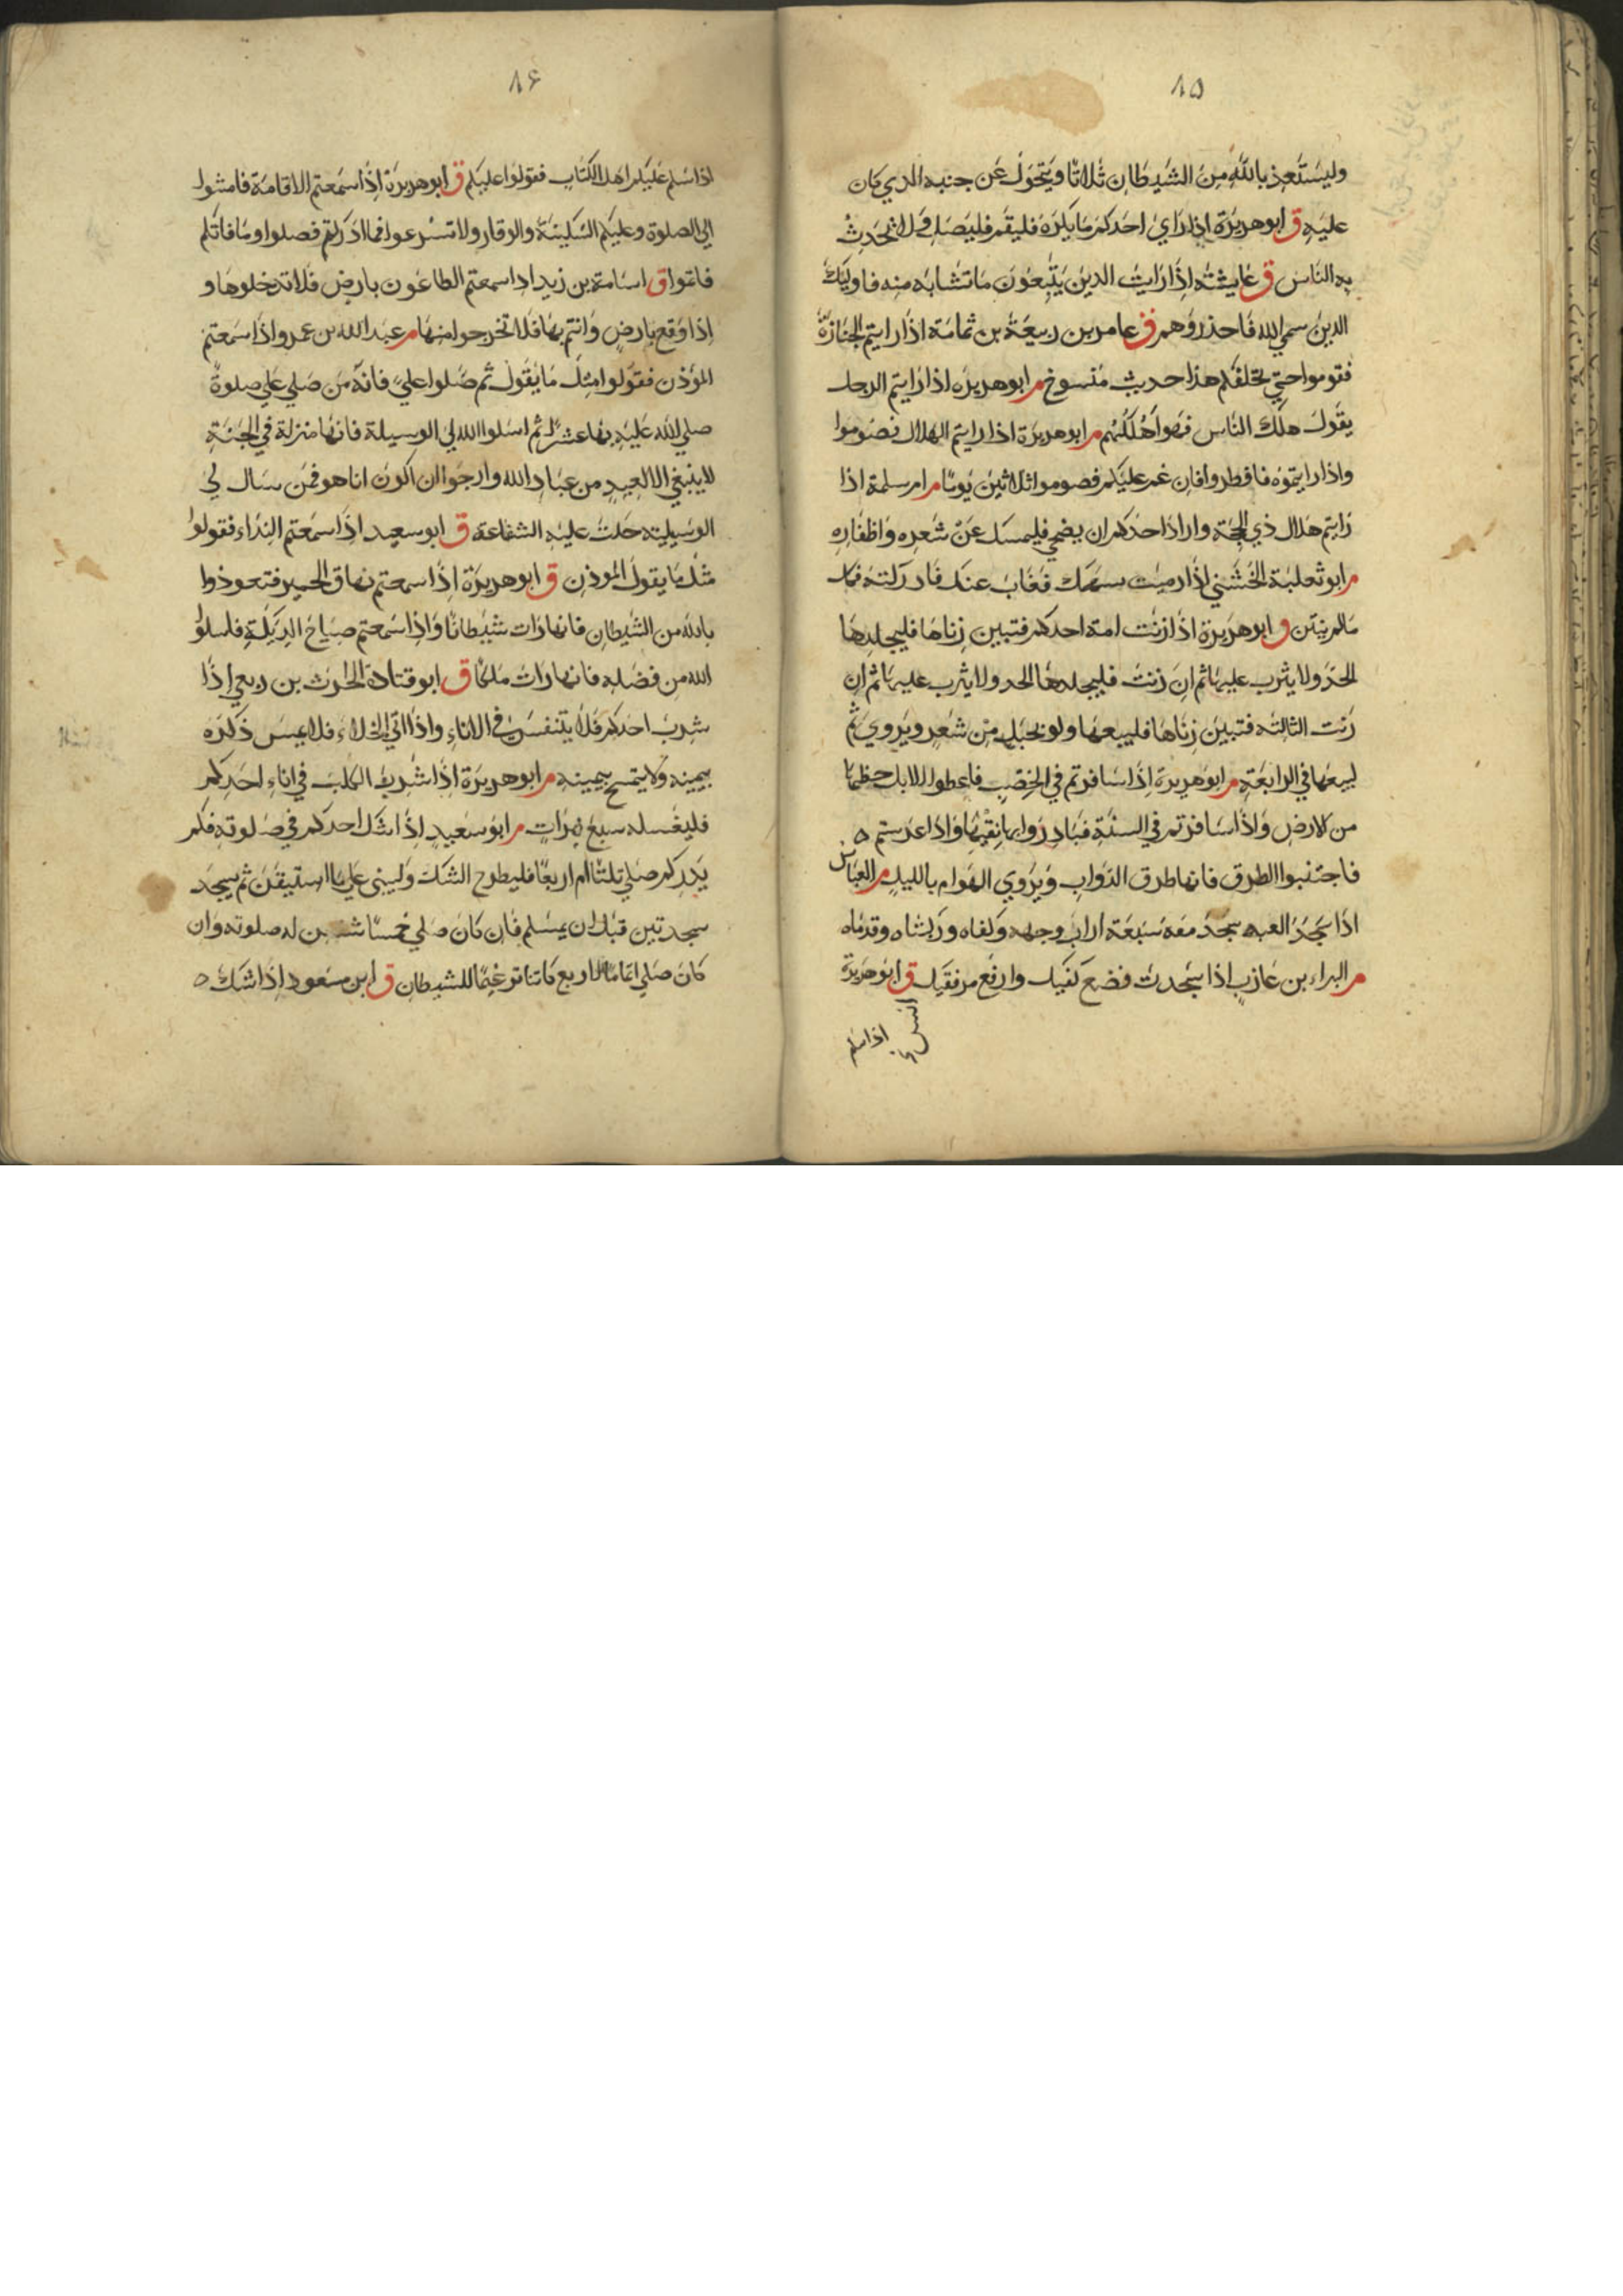 ١٥
وليستعذ بالله من الشيطان ثلاثا ويتحول عن جنبه الذي كان
عليه ق ابو هريرة اذا راي احدكم ما يكره فليقم فليصل ولا يحدث
به الناس ق عايشة اذا رايت الذين يتبعون ما تشابه منه فاوليك
الذين سمي الله فاحذروهم ق عامر بن ربيعة بن ثمامة اذا رايتم الجنازة
فقوموا حتي تخلفكم هذا حديث منسوخ م ابو هريره اذا رايتم الرجل
يقول هلك الناس فهو اهلكهم م ابو هريرة اذا رايتم الهلال فصوموا
واذا رايتموه فافطروا فان غم عليكم فصوموا ثلاثين يوما م ام سلمة اذا
رايتم هلال ذي الحجة واراد احدكم ان يضحي فليمسك عن شعره واظفاره
م ابو ثعلبة الخشني اذا رميت بسهمك فغاب عنك فادركته فكل
ما لم ينتن ق ابو هريرة اذا زنت امة احدكم فتبين زناها فليجلدها
الحد ولا يثرب عليها ثم ان زنت فليجلدها الحد ولا يثرب عليها ثم ان
زنت الثالثة فتبين زناها فليبعها ولو بحبل من شعر ويروي ثم
ليبعها في الرابعة م ابو هريرة اذا سافرتم في الخصب فاعطوا الابل حظها
من الارض واذا سافرتم في السنة فبادروا بها نقيها واذا عرستم
فاجتنبوا الطرق فانها طرق الدواب ويروي الهوام بالليل م العباس
اذا سجد العبد سجد معه سبعة اراب وجهه وكفاه وركبتاه وقدماه
م البراء بن عازب اذا سجدت فضع كفيك وارفع مرفقيك ق ابو هريرة
انس
اذا سلم
١٤
اذا سلم عليكم اهل الكتاب فقولوا عليكم ق ابو هريرة اذا سمعتم الاقامة فامشوا
الي الصلوة وعليكم السكينة والوقار ولا تسرعوا فما ادركتم فصلوا وما فاتكم
فاتموا ق اسامة بن زيد اذا سمعتم الطاعون بارض فلا تدخلوها و
اذا وقع بارض وانتم بها فلا تخرجوا منها م عبد الله بن عمرو اذا سمعتم
المؤذن فقولوا مثل ما يقول ثم صلوا علي فانه من صلي علي صلوة
صلي الله عليه بها عشرا ثم اسلوا الله لي الوسيلة فانها منزلة في الجنة
لا ينبغي الا لعبد من عباد الله وارجوا ان اكون انا هو فمن سال لي
الوسيلية حلت عليه الشفاعة ق ابو سعيد اذا سمعتم النداء فقولوا
مثل ما يقول المؤذن ق ابو هريرة اذا سمعتم نهاق الحمير فتعوذوا
بالله من الشيطان فانها رات شيطانا واذا سمعتم صياح الديكة فاسلوا
الله من فضله فانها رات ملكا ق ابو قتادة الحرث بن ربعي اذا
شرب احدكم فلا يتنفس في الاناء واذا اتي الخلاء فلا يمس ذكره
بيمينه ولا يتمسح بيمينه م ابو هريرة اذا شرب الكلب في اناء احدكم
فليغسله سبع مرات م ابو سعيد اذا شك احدكم في صلوته فلم
يدر كم صلي ثلثا ام اربعا فليطرح الشك وليبني علي ما استيقن ثم يسجد
سجدتين قبل ان يسلم فان كان صلي خمسا شفعن له صلوته وان
كان صلي اتماما لاربع كانتا ترغيما للشيطان ق ابن مسعود اذا شك